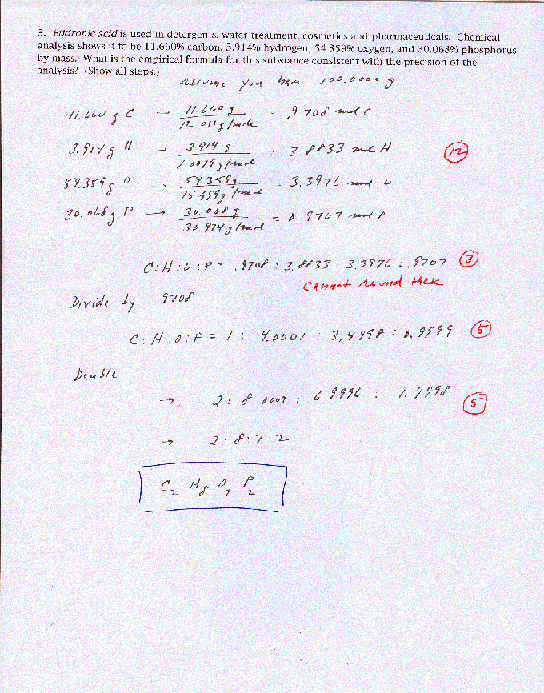 3. Etidronic acid is used in detergents, water treatment, cosmetics and pharmaceuticals. Chemical
analysis shows it to be 11.660% carbon, 3.914% hydrogen, 54.359% oxygen, and 30.068% phosphorus
by mass. What is the empirical formula for this substance consistent with the precision of the
analysis? (Show all steps.)
Assume you have 100.000 g
11.660 g C → 11.660 g / 12.011 g/mole = .9708 mol C
3.914 g H → 3.914 g / 1.0079 g/mole = 3.8833 mol H (12)
54.359 g O → 54.359 g / 15.999 g/mole = 3.3976 mol O
30.068 g P → 30.068 g / 30.974 g/mole = 0.9707 mol P
C:H:O:P = .9708 : 3.8833 : 3.3976 : .9707 (3)
Cannot round these
Divide by .9708
C:H:O:P = 1 : 4.0001 : 3.4998 : 0.9999 (5)
Double
→ 2 : 8.0002 : 6.9996 : 1.9998 (5)
→ 2:8:7:2
C2 H8 O7 P2